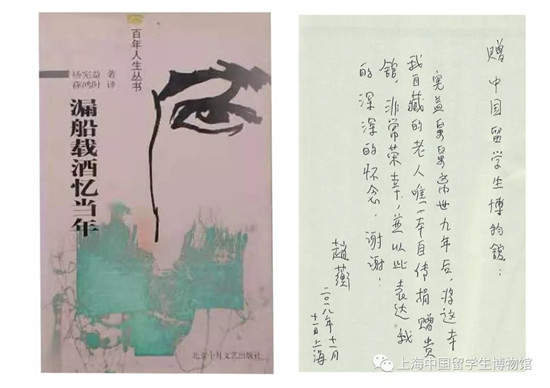 百年人生丛书
杨宪益 著
薛鸿时 译
漏船载酒忆当年
北京十月文艺出版社
赠中国留学生博物馆：
宪益舅舅离世九年后，将这本
我自藏的老人唯一一本自传捐赠贵
馆，非常荣幸，並以此表达我
的深深的怀念，谢谢！
趙蘅
二〇一八年十一月
十一日上海
上海中国留学生博物馆